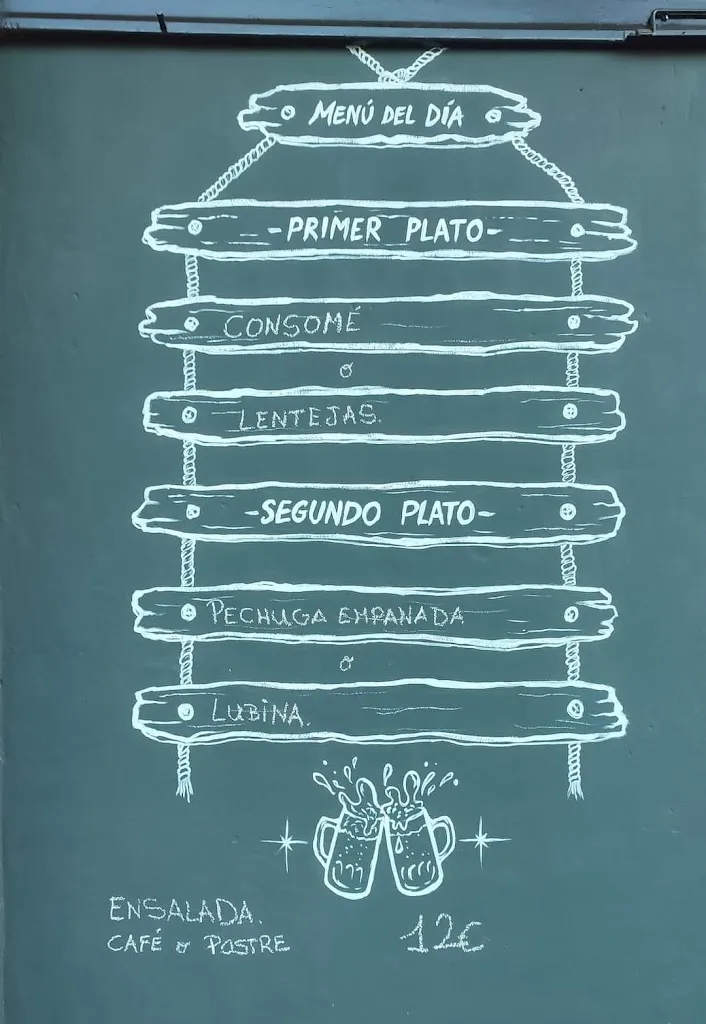 MENÚ DEL DÍA
-PRIMER PLATO-
CONSOMÉ
o
LENTEJAS.
-SEGUNDO PLATO-
PECHUGA EMPANADA
o
LUBINA.
ENSALADA.
CAFÉ o POSTRE
12€